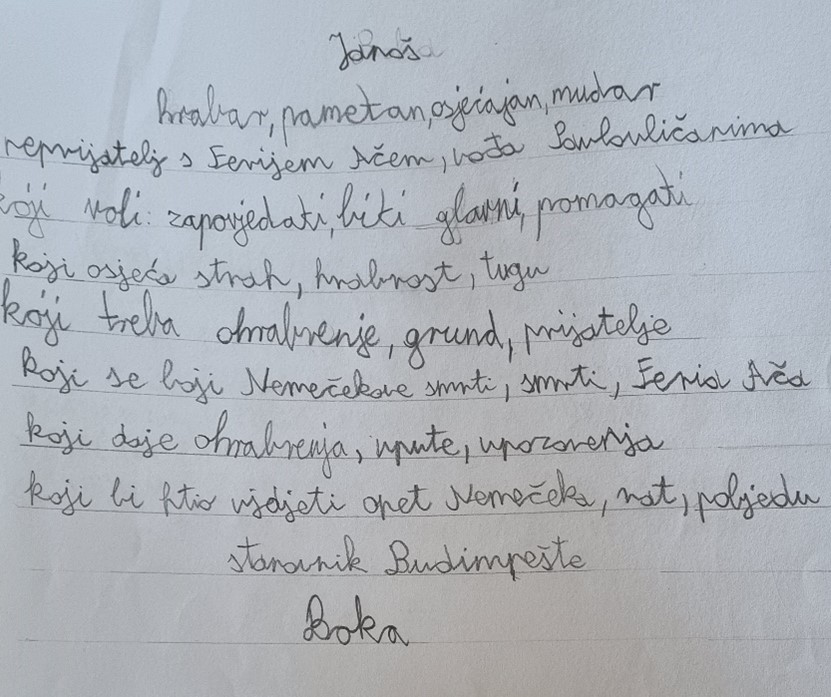 Janoš
hrabar, pametan, osjećajan, mudar
neprijatelj s Ferijem Ačem, vođa Pavlovličanima
koji voli: zapovjedati, biti glavni, pomagati
koji osjeća strah, hrabrost, tugu
koji treba ohrabrenje, grund, prijatelje
koji se boji Nemečekove smrti, smrti, Feria Ača
koji daje ohrabrenja, upute, upozorenja
koji bi htio vidjeti opet Nemečeka, rat, pobjedu
stanovnik Budimpešte
Boka